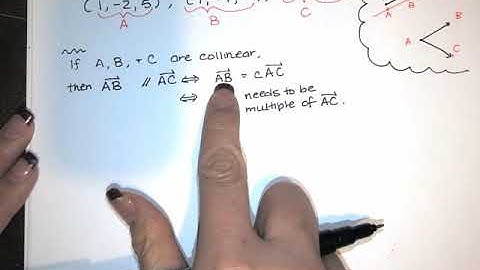 (1, -2, 5)
A
B
C
If A, B, + C are collinear,
then AB // AC ⇔ AB = c AC
⇔ needs to be
multiple of AC.
A
B
A
B
C